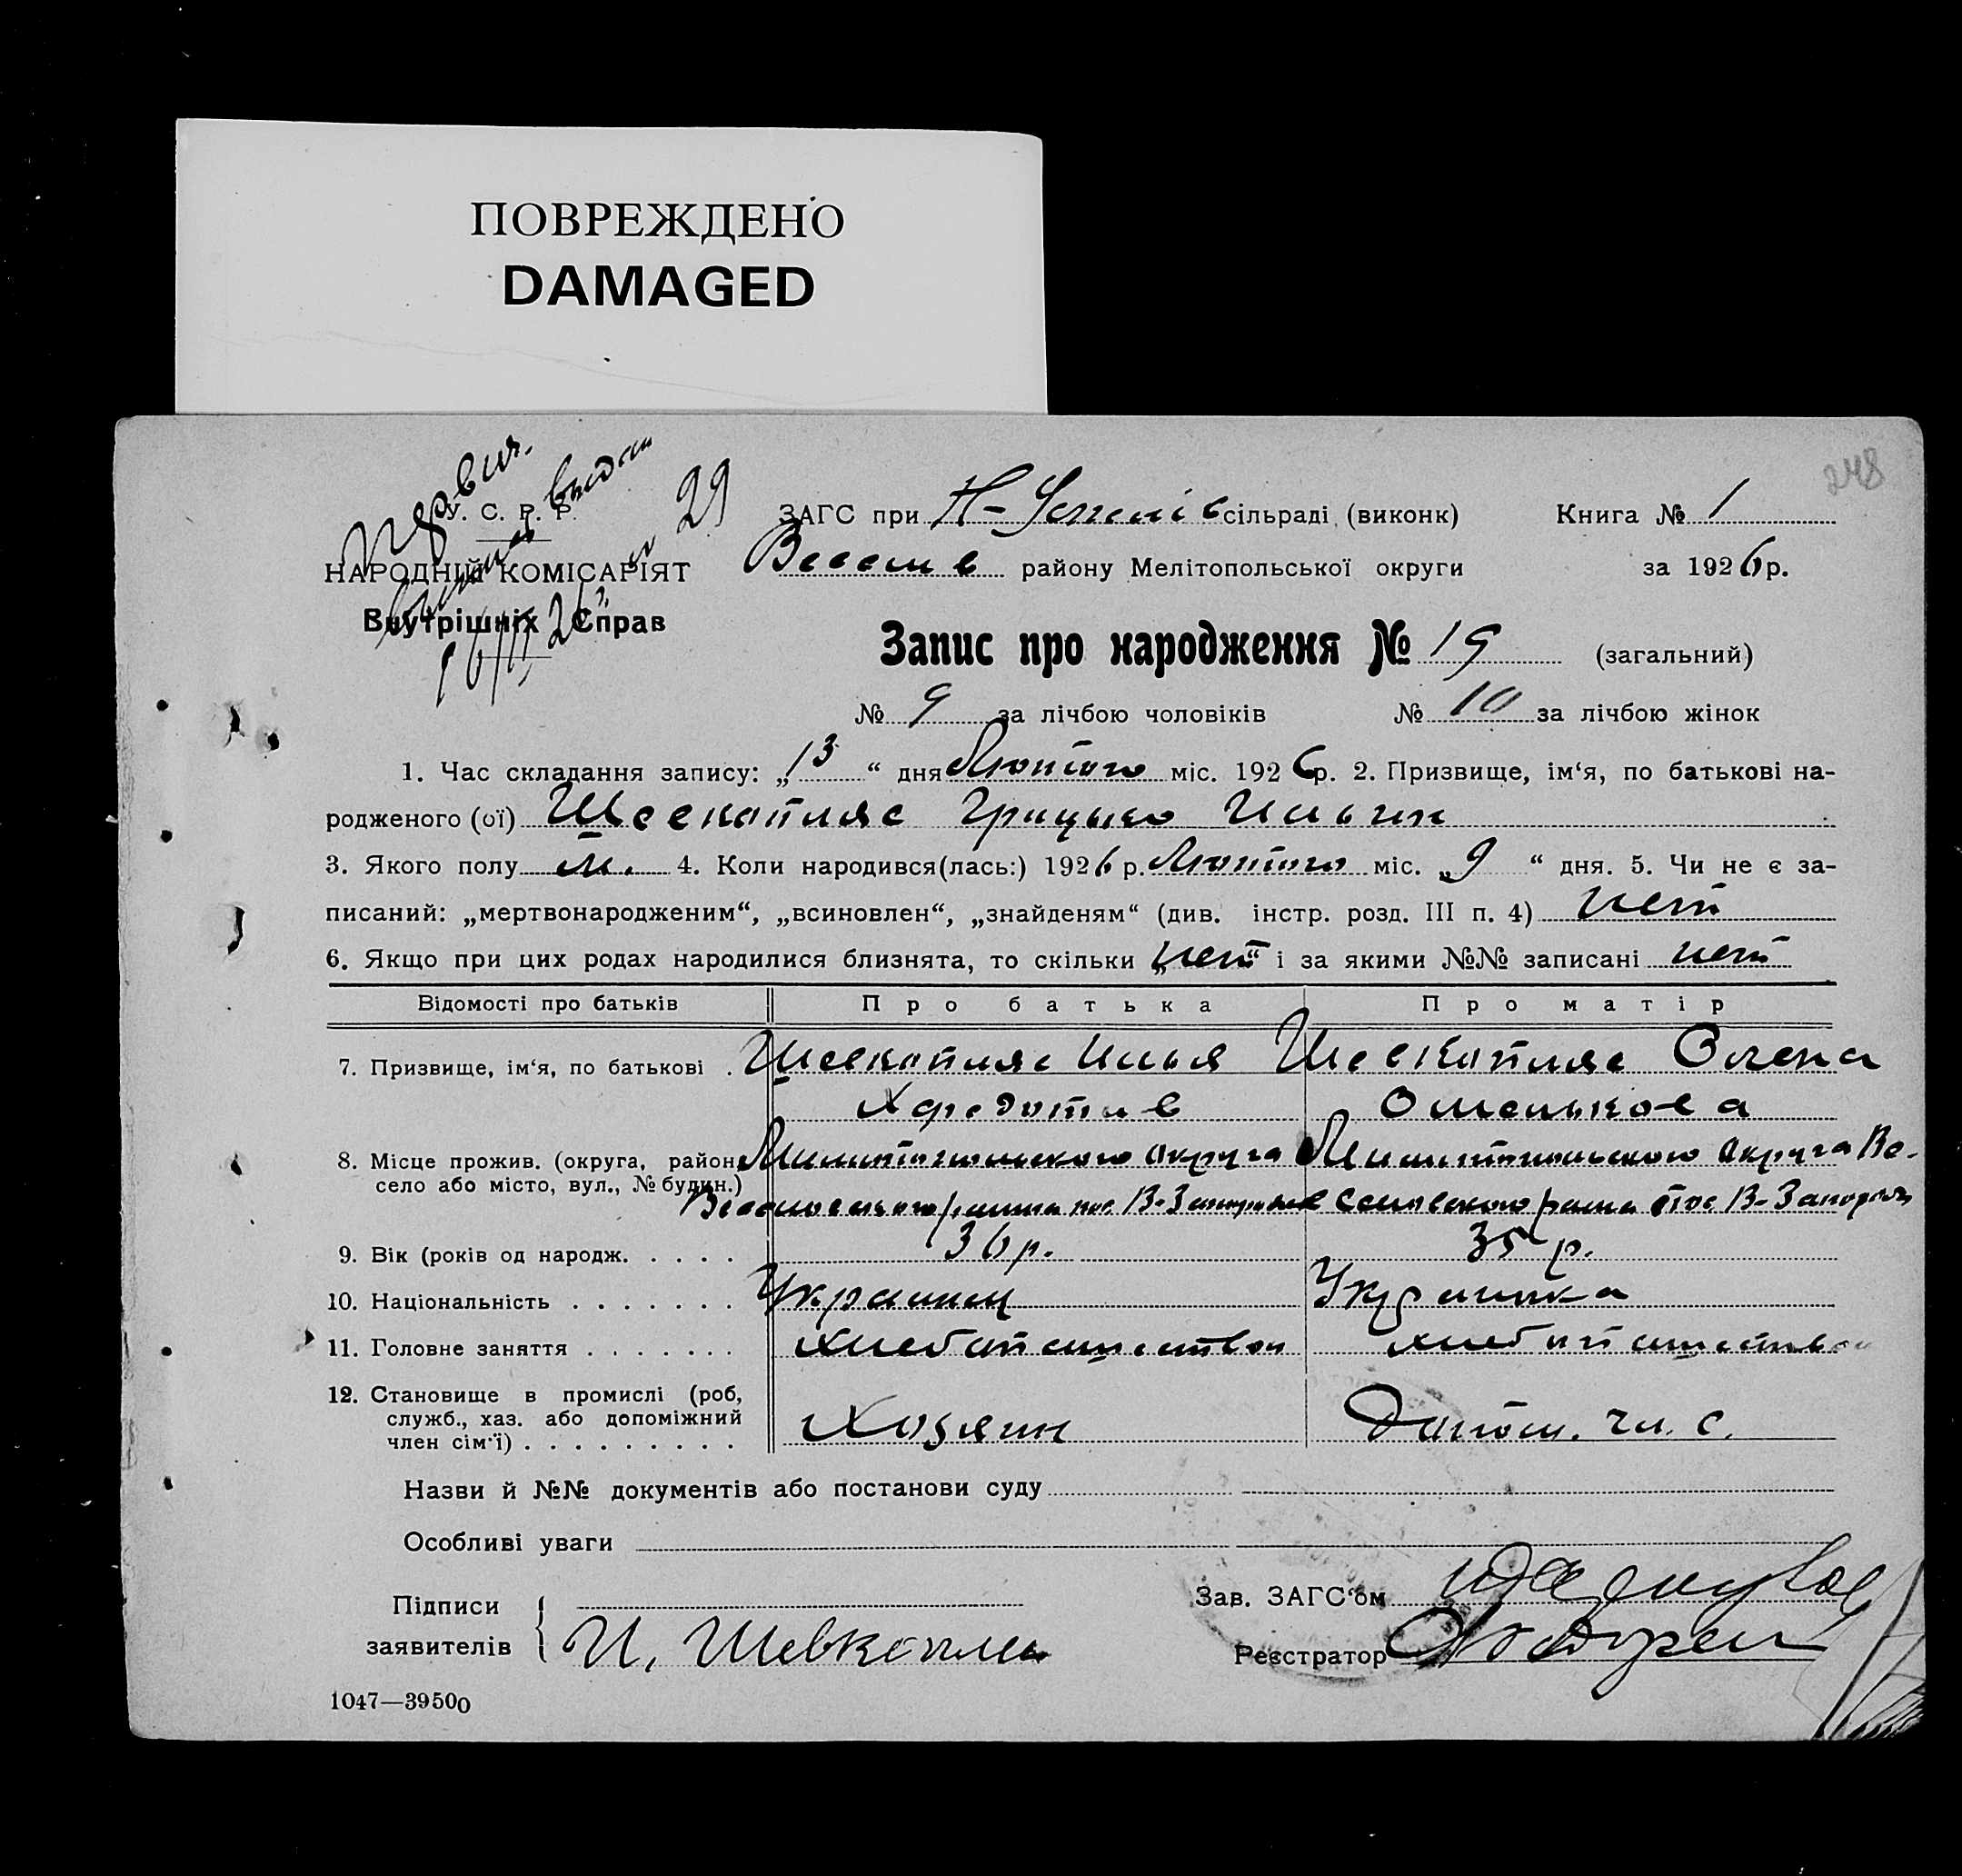 ПОВРЕЖДЕНО
DAMAGED
248
У. С. Р. Р.
НАРОДНІЙ КОМІСАРІЯТ
Внутрішніх Справ
29
ЗАГС при сільраді (виконк) Книга № 1
району Мелітопольської округи за 1926 р.
Запис про народження № 19 (загальний)
№ 9 за лічбою чоловіків № 10 за лічбою жінок
1. Час складання запису: „13“ дня Лютого міс. 1926 р. 2. Призвище, ім‘я, по батькові на-
родженого (ої) Шевкопляс Грицько Ильин
3. Якого полу м. 4. Коли народився(лась:) 1926 р. Лютого міс. „9“ дня. 5. Чи не є за-
писаний: „мертвонародженим“, „всиновлен“, „знайденям“ (див. інстр. розд. III п. 4) нет
6. Якщо при цих родах народилися близнята, то скільки „нет“ і за якими №№ записані нет
Відомості про батьків Про батька Про матір
7. Призвище, ім‘я, по батькові . Шевкопляс Илья Шевкопляс Олена
Омелькова
8. Місце прожив. (округа, район, Милитопольского округа Милитопольского округа Ве-
село або місто, вул., № будин.)
9. Вік (років од народж. . . . . 36 р. 35 р.
10. Національність . . . . . . . Украинец Украинка
11. Головне заняття . . . . . . . хлебопашество хлебопашество
12. Становище в промислі (роб, служб., хаз. або допоміжний член сім‘ї) . . . . . . . . . Хозяин Допом. чл. с.
Назви й №№ документів або постанови суду
Особливі уваги
Підписи заявителів И. Шевкопляс
Зав. ЗАГС‘ом
Реєстратор
1047—39500